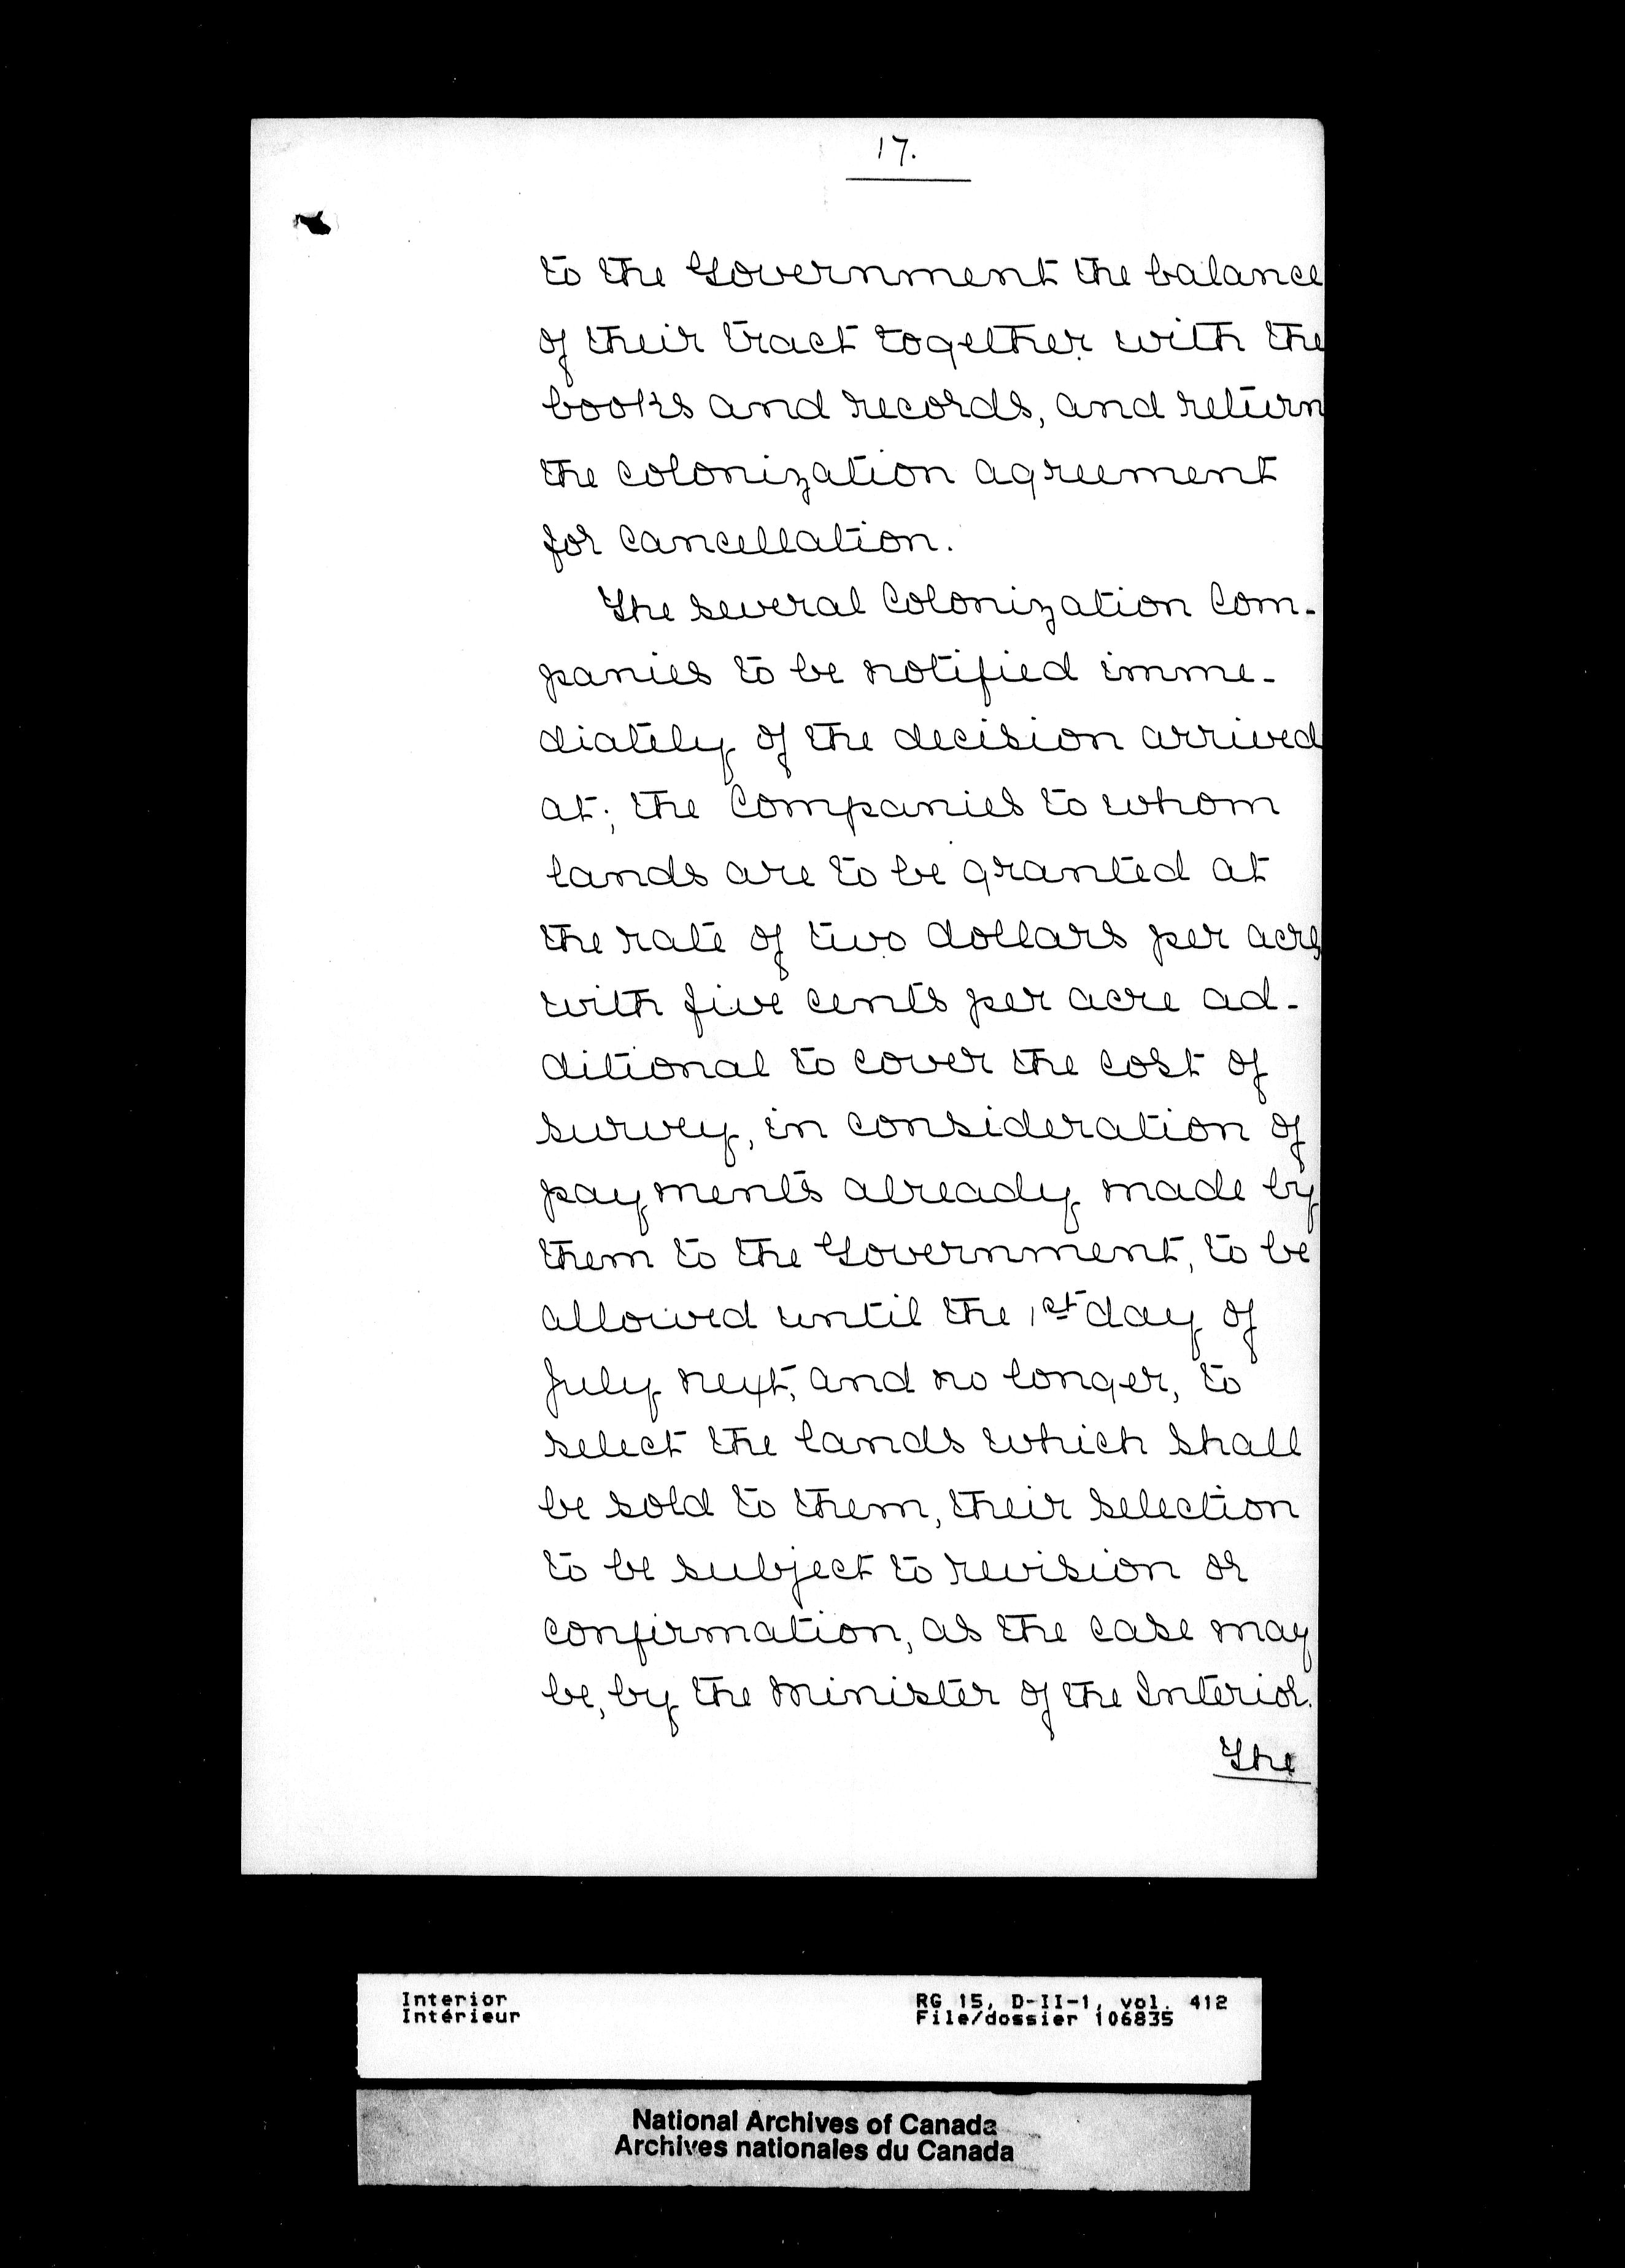 17.
to the Government the balance
of their tract together with the
books and records, and return
the colonization agreement
for cancellation.
The several Colonization Com-
panies to be notified imme-
diately of the decision arrived
at; the Companies to whom
lands are to be granted at
the rate of two dollars per acre,
with five cents per acre ad-
ditional to cover the cost of
survey, in consideration of
payments already made by
them to the Government, to be
allowed until the 1st day of
July next, and no longer, to
select the lands which shall
be sold to them, their selection
to be subject to revision or
confirmation, as the case may
be, by the Minister of the Interior.
The
Interior RG 15, D-II-1, vol. 412
Intérieur File/dossier 106835
National Archives of Canada
Archives nationales du Canada